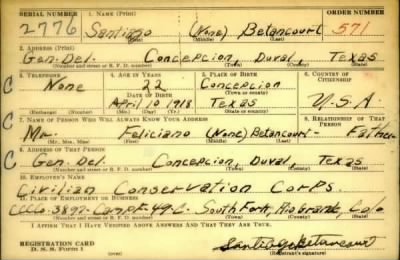 SERIAL NUMBER 1. NAME (Print) ORDER NUMBER
2776 Santiago (None) Betancourt 571
(First) (Middle) (Last)
2. ADDRESS (Print)
Gen. Del. Concepcion, Duval, Texas
(Number and street or R. F. D. number) (Town) (County) (State)
3. TELEPHONE 4. AGE IN YEARS 5. PLACE OF BIRTH 6. COUNTRY OF CITIZENSHIP
None 22 Concepcion
DATE OF BIRTH (Town or county)
April 10 1918 Texas U.S.A
(Exchange) (Number) (Mo.) (Day) (Yr.) (State or country)
7. NAME OF PERSON WHO WILL ALWAYS KNOW YOUR ADDRESS 8. RELATIONSHIP OF THAT PERSON
Mr. Feliciano (None) Betancourt - Father
(Mr., Mrs., Miss) (First) (Middle) (Last)
9. ADDRESS OF THAT PERSON
C Gen. Del. Concepcion, Duval, Texas
(Number and street or R. F. D. number) (Town) (County) (State)
10. EMPLOYER'S NAME
Civilian Conservation Corps.
11. PLACE OF EMPLOYMENT OR BUSINESS
South Fork, Rio Grande, Colo
(Number and street or R. F. D. number) (Town) (County) (State)
I AFFIRM THAT I HAVE VERIFIED ABOVE ANSWERS AND THAT THEY ARE TRUE.
REGISTRATION CARD
D. S. S. Form 1 Santiago Betancourt
(Registrant's signature)